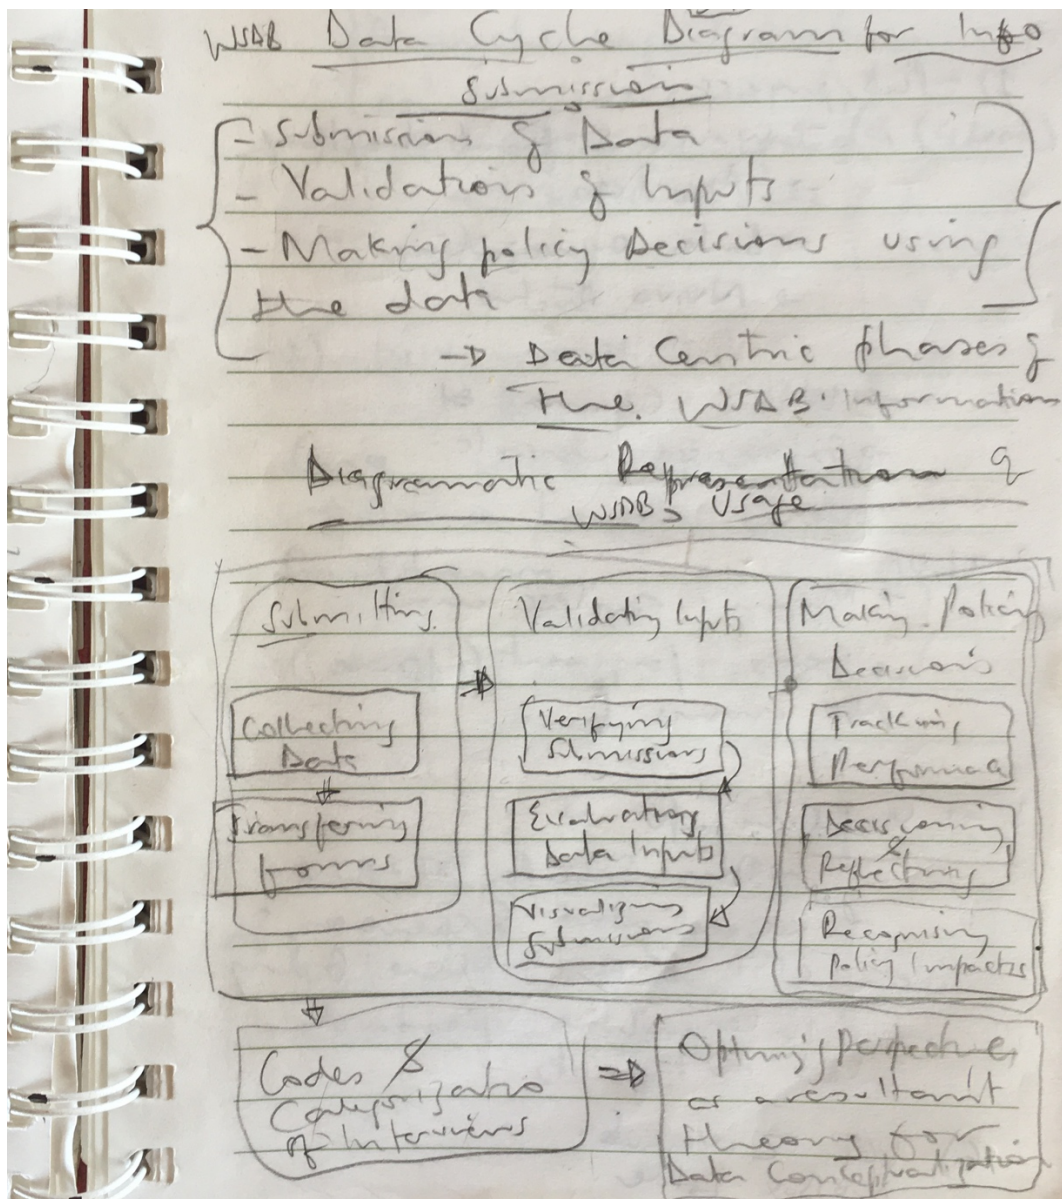 WSAB Data Cycle Diagram for Info
Submission
- Submission of Data
- Validation of Inputs
- Making policy Decisions using
the data
→ Data Centric phases of
the WSAB Information
Diagramatic Representation of
WSAB's Usage
Submitting
Collecting
Data
Transfering
forms
Validating Inputs
Verifying
Submissions
Evaluating
Data Inputs
Visualizing
Submissions
Making Policy
Decisions
Tracking
Decisioning
&
Reflecting
Recognising
Policy Impacts
Codes &
of Interviews
Perspective
as a resultant
theory for
Data Conceptualization